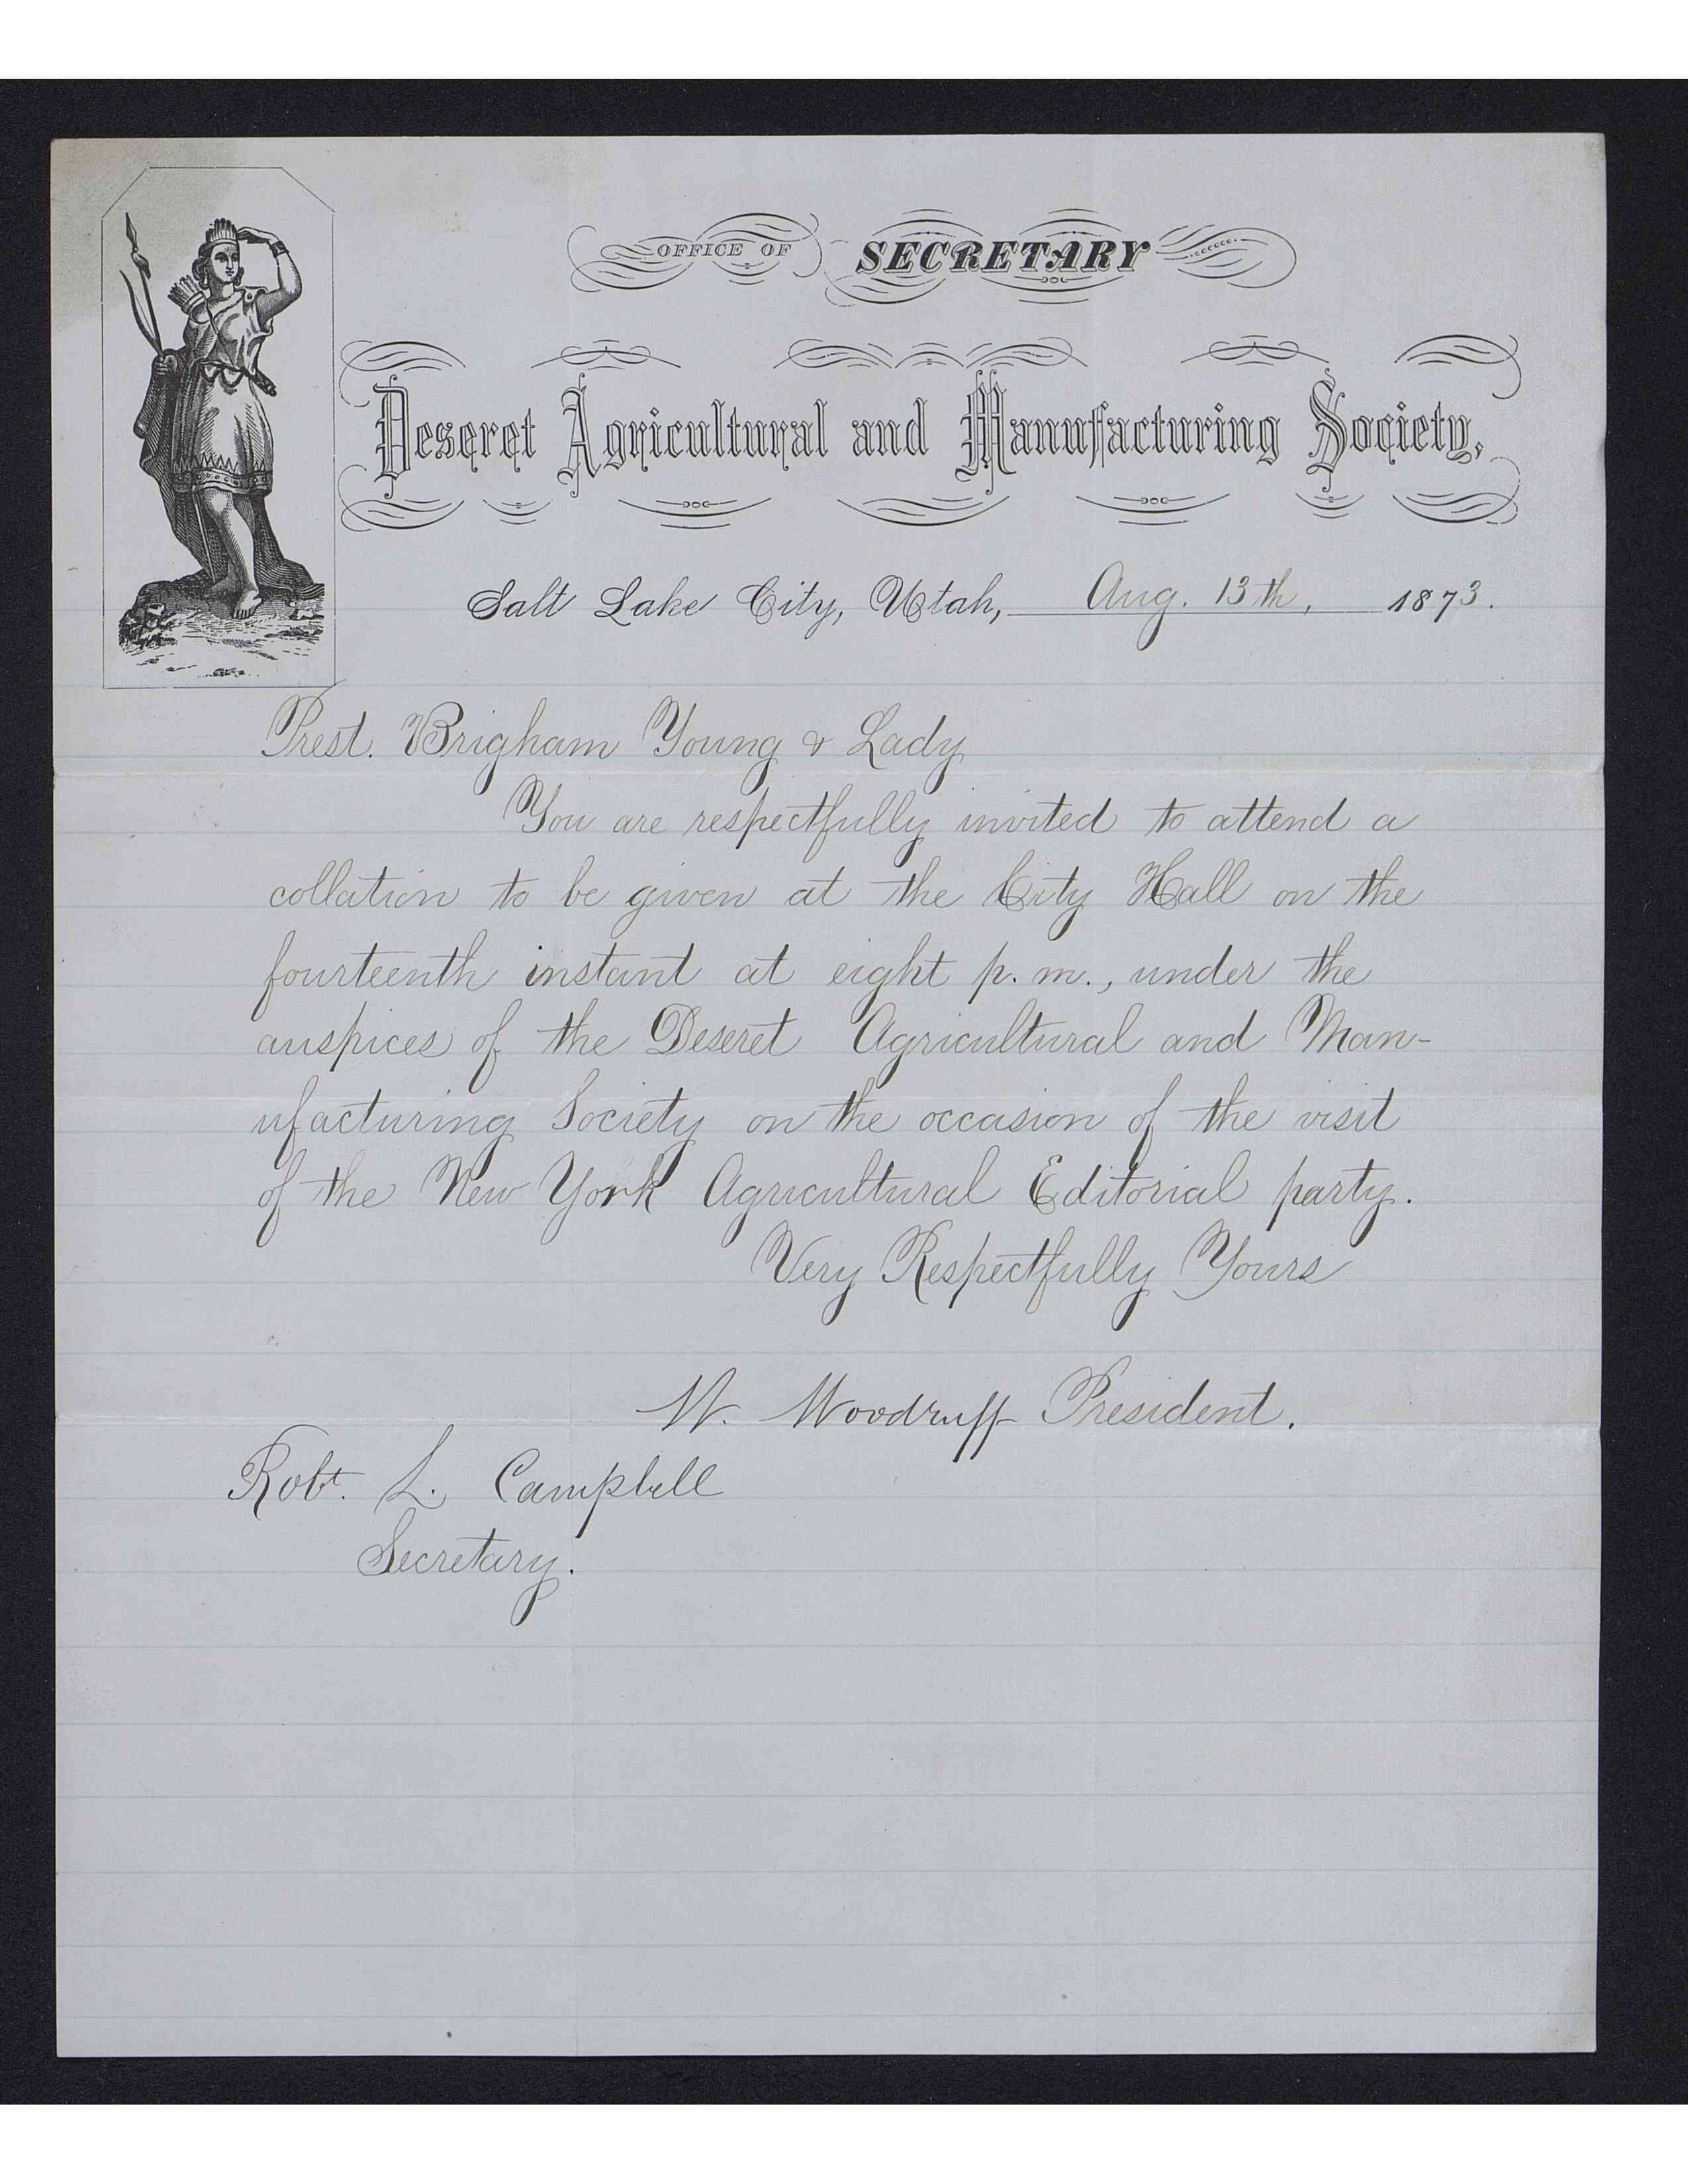 OFFICE OF SECRETARY
Deseret Agricultural and Manufacturing Society,
Salt Lake City, Utah, Aug. 13th, 1873.
Prest. Brigham Young & Lady
You are respectfully invited to attend a
collation to be given at the City Hall on the
fourteenth instant at eight p. m., under the
auspices of the Deseret Agricultural and Man-
ufacturing Society on the occasion of the visit
of the New York Agricultural Editorial party.
Very Respectfully Yours
W. Woodruff President.
Robt. L. Campbell
Secretary.